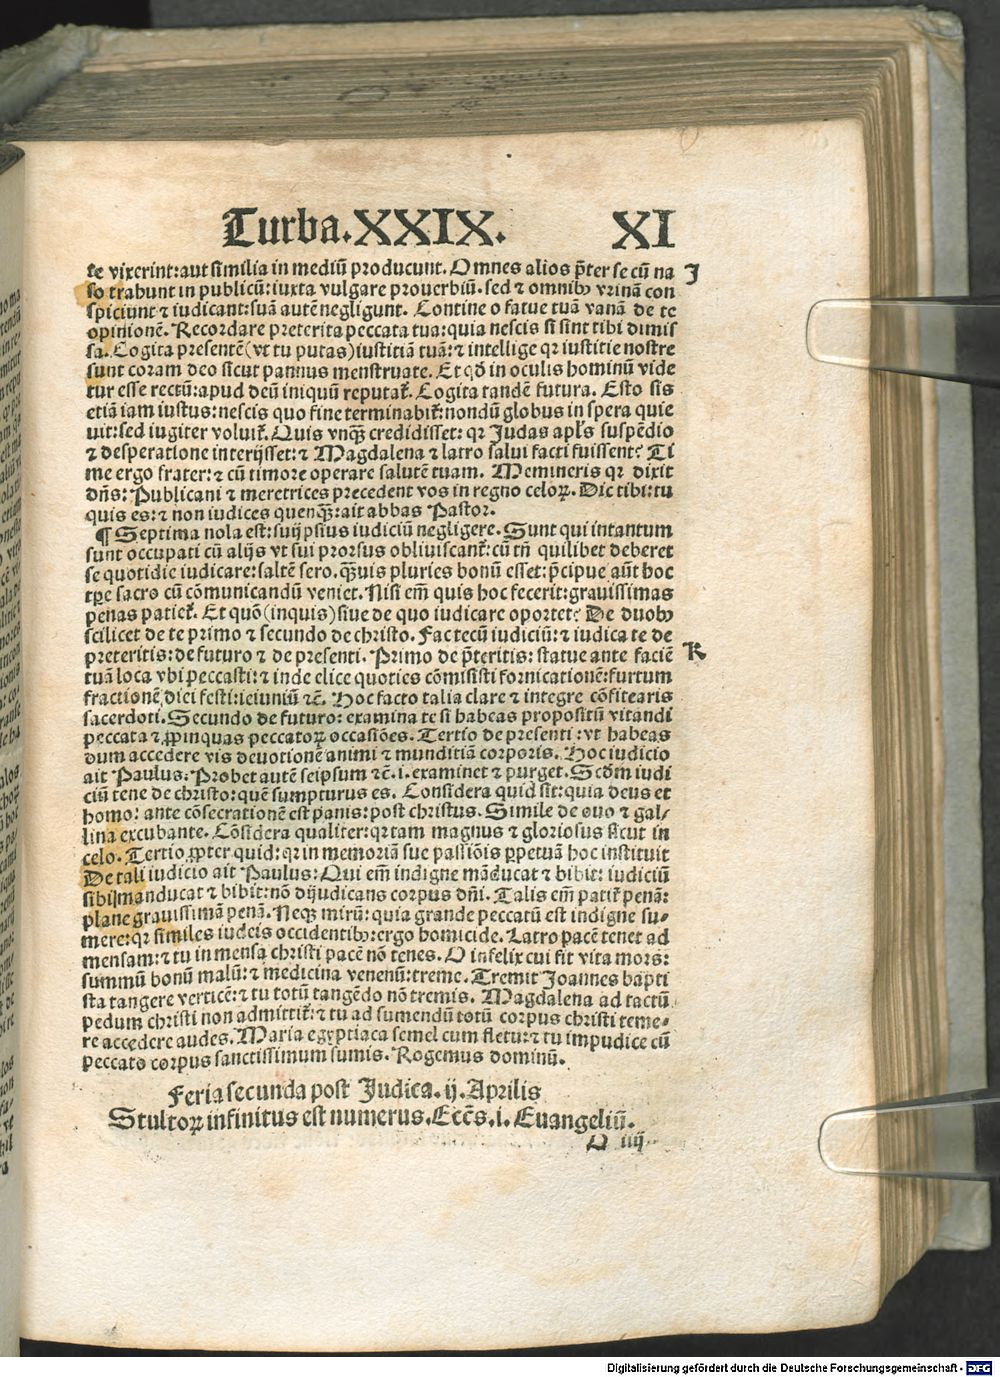 Turba.XXIX. XI
te vixerint:aut similia in mediū producunt. Omnes alios p̄ter se cū na J
so trahunt in publicū:iuxta vulgare prouerbiū. sed ⁊ omnibꝰ vrinā con
spiciunt ⁊ iudicant:suā autē negligunt. Contine o fatue tuā vanā de te
opinionē. Recordare preterita peccata tua:quia nescis si sint tibi dimis
sa. Cogita presentē(vt tu putas)iustitiā tuā:⁊ intellige qꝛ iustitie nostre
sunt coram deo sicut pannus menstruate. Et qð in oculis hominū vide
tur esse rectū:apud deū iniquū reputat᷑. Cogita tandē futura. Esto sis
etiā iam iustus:nescis quo fine terminabit᷑:nondū globus in spera quie
uit:sed iugiter voluit᷑. Quis vnqꝫ credidisset: qꝛ Judas apl's suspēdio
⁊ desperatione interijsset:⁊ Magdalena ⁊ latro salui facti fuissent? Ti
me ergo frater:⁊ cū timore operare salutē tuam. Memineris qꝛ dixit
dn̄s: Publicani ⁊ meretrices precedent vos in regno celoꝝ. Dic tibi:tu
quis es:⁊ non iudices quenqꝫ:ait abbas Pastor.
¶ Septima nola est:suijpsius iudiciū negligere. Sunt qui intantum
sunt occupati cū alijs vt sui prorsus obliuiscant᷑:cū tn̄ quilibet deberet
se quotidie iudicare:saltē sero. qꝫuis pluries bonū esset:p̄cipue aūt hoc
tp̄e sacro cū cōmunicandū veniet. Nisi em̄ quis hoc fecerit:grauissimas
penas patiet᷑. Et quō(inquis)siue de quo iudicare oportet? De duobꝰ
scilicet de te primo ⁊ secundo de christo. Fac tecū iudiciū:⁊ iudica te de
preteritis:de futuro ⁊ de presenti. Primo de p̄teritis: statue ante faciē K
tuā loca vbi peccasti:⁊ inde elice quoties cōmisisti fornicationē:furtum
fractionē diei festi:ieiuniū ⁊c̄. Hoc facto talia clare ⁊ integre cōfitearis
sacerdoti. Secundo de futuro: examina te si habeas propositū vitandi
peccata ⁊ ꝓpinquas peccatoꝝ occasiōes. Tertio de presenti:vt habeas
dum accedere vis deuotionē animi ⁊ munditiā corporis. Hoc iudicio
ait Paulus: Probet autē seipsum ⁊c̄. i. examinet ⁊ purget. Scðm iudi
ciū tene de christo:quē sumpturus es. Considera quid sit:quia deus et
homo: ante cōsecrationē est panis:post christus. Simile de ouo ⁊ gal/
lina excubante. Cōsidera qualiter:qꝛ tam magnus ⁊ gloriosus sicut in
celo. Tertio ꝓpter quid:qꝛ in memoriā sue passiōis ꝑpetuā hoc instituit
De tali iudicio ait Paulus:Qui em̄ indigne māducat ⁊ bibit: iudiciū
sibijmanducat ⁊ bibit:nō dijudicans corpus dn̄i. Talis em̄ patit᷑ penā:
plane grauissimā penā. Neqꝫ mirū:quia grande peccatū est indigne su-
mere:qꝛ similes iudeis occidentibꝰ:ergo homicide. Latro pacē tenet ad
mensam:⁊ tu in mensa christi pacē nō tenes. O infelix cui fit vita mors:
summū bonū malū:⁊ medicina venenū:treme. Tremit Joannes bapti
sta tangere verticē:⁊ tu totū tangēdo nō tremis. Magdalena ad tactū
pedum christi non admittit᷑:⁊ tu ad sumendū totū corpus christi teme-
re accedere audes. Maria egyptiaca semel cum fletu:⁊ tu impudice cū
peccato corpus sanctissimum sumis. Rogemus dominū.
Feria secunda post Judica. ij. Aprilis
Stultoꝝ infinitus est numerus. Ecc̄s. i. Euangeliū.
O iiij
Digitalisierung gefördert durch die Deutsche Forschungsgemeinschaft - DFG